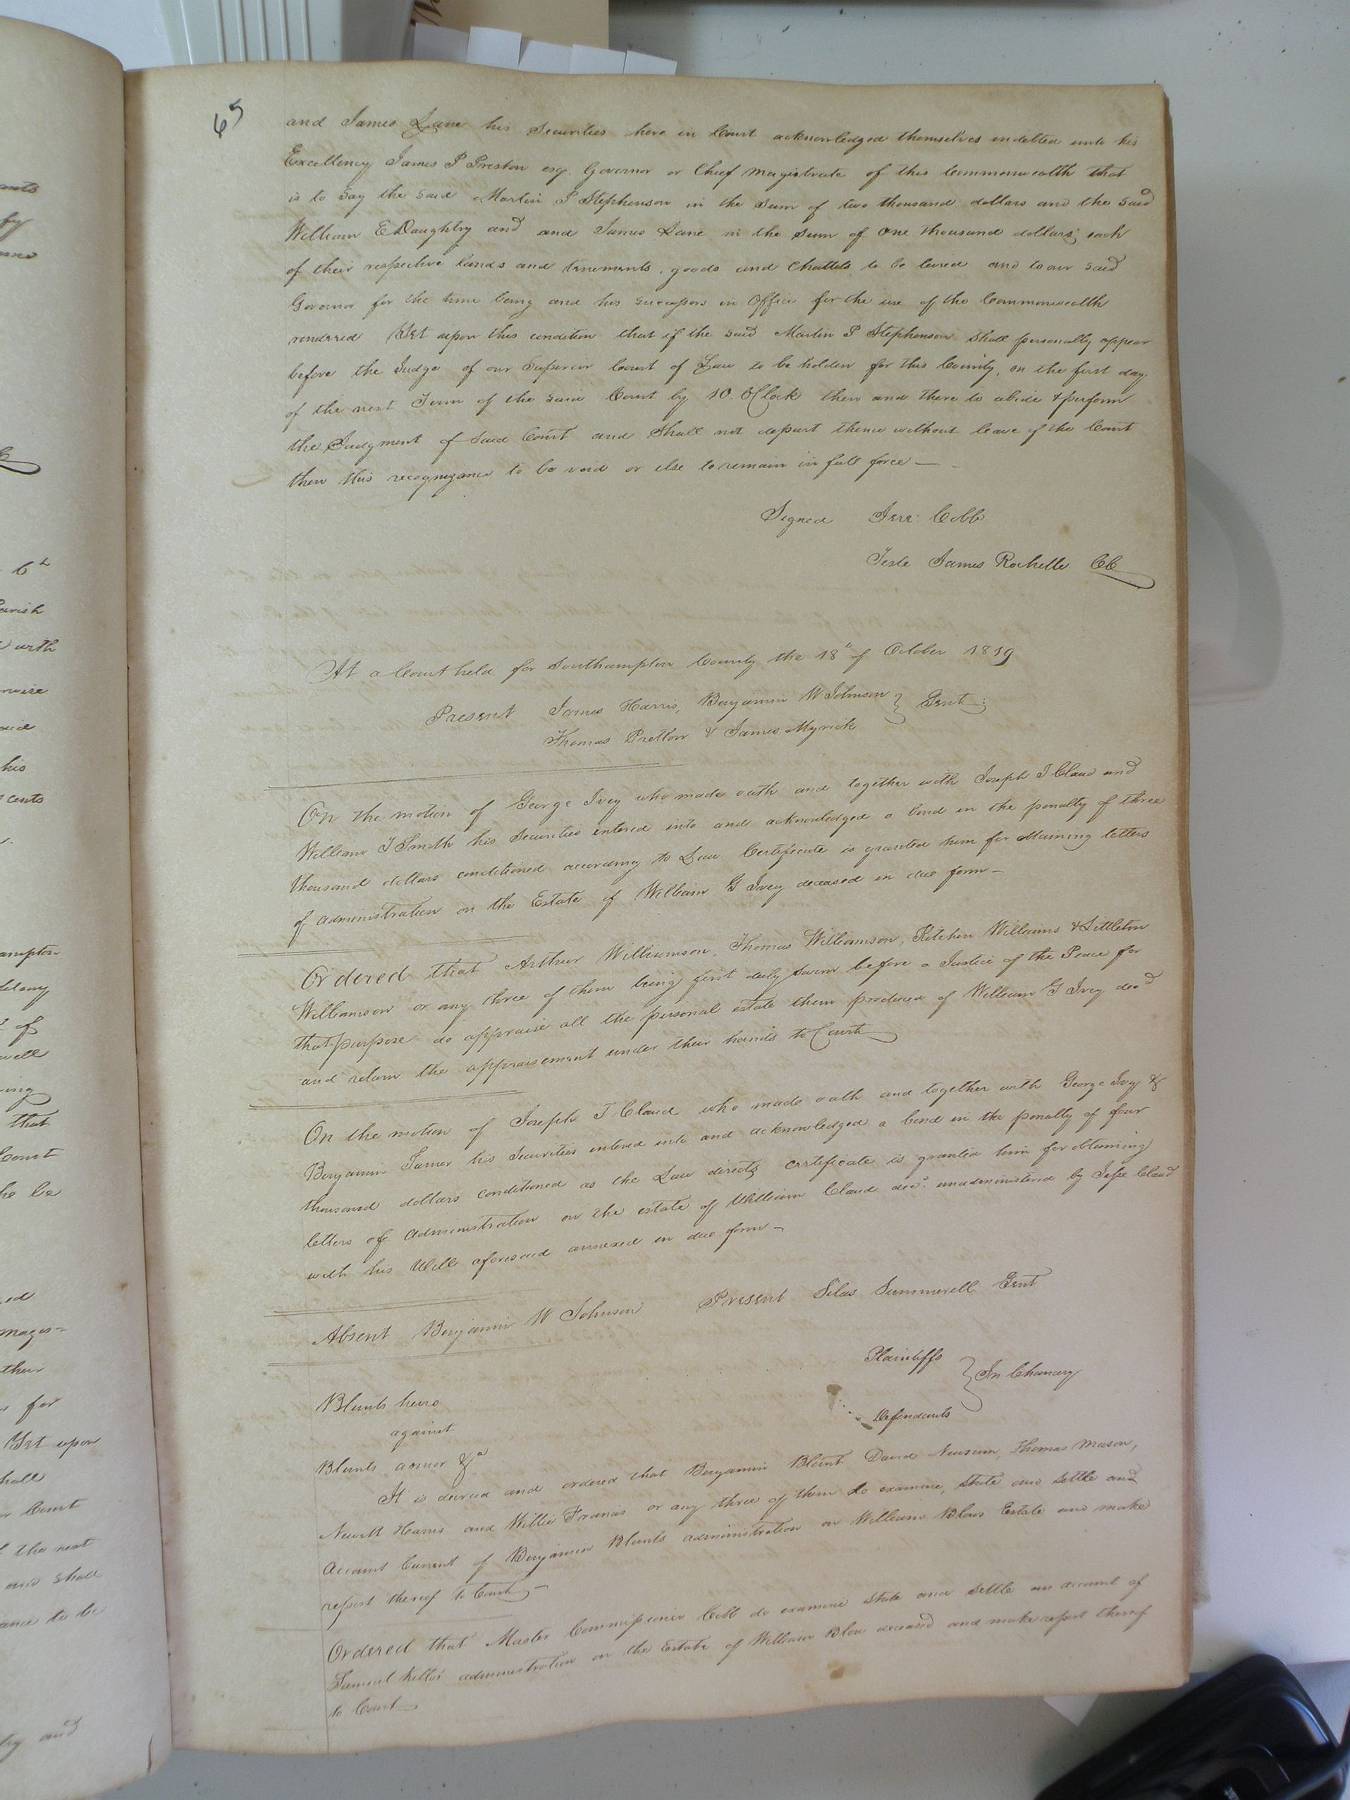 65
and James Lane his Securities here in Court acknowledged themselves indebted unto his
Excellency James P Preston esq. Governor or Chief Magistrate of this Commonwealth that
is to say the said Martin P Stephenson in the Sum of two thousand dollars and the said
William E Daughtry and and James Lane in the Sum of one thousand dollars each
of their respective lands and tenements, goods and Chattels to be levied and to our said
Governor for the time being and his successors in Office for the use of the Commonwealth
rendered Yet upon this condition that if the said Martin P Stephenson shall personally appear
before the Judge of our Superior Court of Law to be holden for this County, on the first day
of the next Term of the said Court by 10. OClock then and there to abide & perform
the Judgment of said Court and shall not depart thence without leave of the Court
then this recognizance to be void or else to remain in full force —
Signed Jere: Cobb
Teste James Rochelle CC
At a Court held for Southampton County the 18th of October 1819
Present James Harris, Benjamin W Johnson } Gent:
Thomas Pretlow & James Myrick
On the motion of George Ivey who made oath and together with Joseph T Claud and
William T Smith his Securities entered into and acknowledged a bond in the penalty of three
thousand dollars conditioned according to Law Certificate is granted him for obtaining letters
of administration on the Estate of William G Ivey deceased in due form —
Ordered that Arthur Williamson, Thomas Williamson, Kitchen Williams & Littleton
Williamson or any three of them being first duly sworn before a Justice of the Peace for
that purpose do appraise all the personal estate them produced of William G Ivey decd
and return the appraisement under their hands to Court
On the motion of Joseph T Claud who made oath and together with George Ivey &
Benjamin Turner his Securities entered into and acknowledged a bond in the penalty of four
thousand dollars conditioned as the Law directs certificate is granted him for obtaining
letters of administration on the estate of William Claud decd. unadministered by Jesse Claud
with his Will aforesaid annexed in due form —
Absent Benjamin W Johnson Present Silas Summerell Gent
Blunts heirs Plaintiffs
against } In Chancery
Blunts admor &a Defendants
It is decreed and ordered that Benjamin Blunt David Newsum, Thomas Mason,
Newitt Harris and Willie Francis or any three of them do examine, State and settle and
account Current of Benjamin Blunts administration on William Blows Estate and make
report thereof to Court —
Ordered that Master Commissioner Cobb do examine State and Settle an account of
Samuel Kellos administration on the Estate of William Blow deceased and make report thereof
to Court —